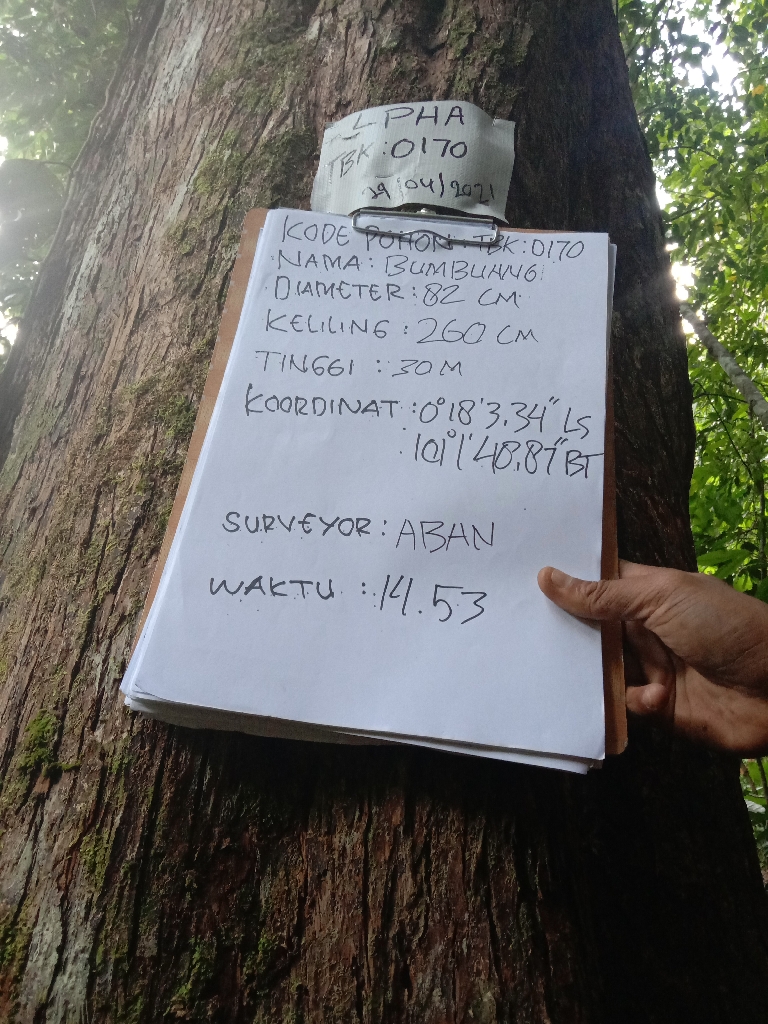 ALPHA
TBK:0170
29/04/2021
KODE POHON: TBK:0170
NAMA: BUMBUANG
DIAMETER: 82 CM
KELILING: 260 CM
TINGGI : 30 M
KOORDINAT :0°18'3,34" LS
101°1'48,87" BT
SURVEYOR: ABAN
WAKTU : 14.53